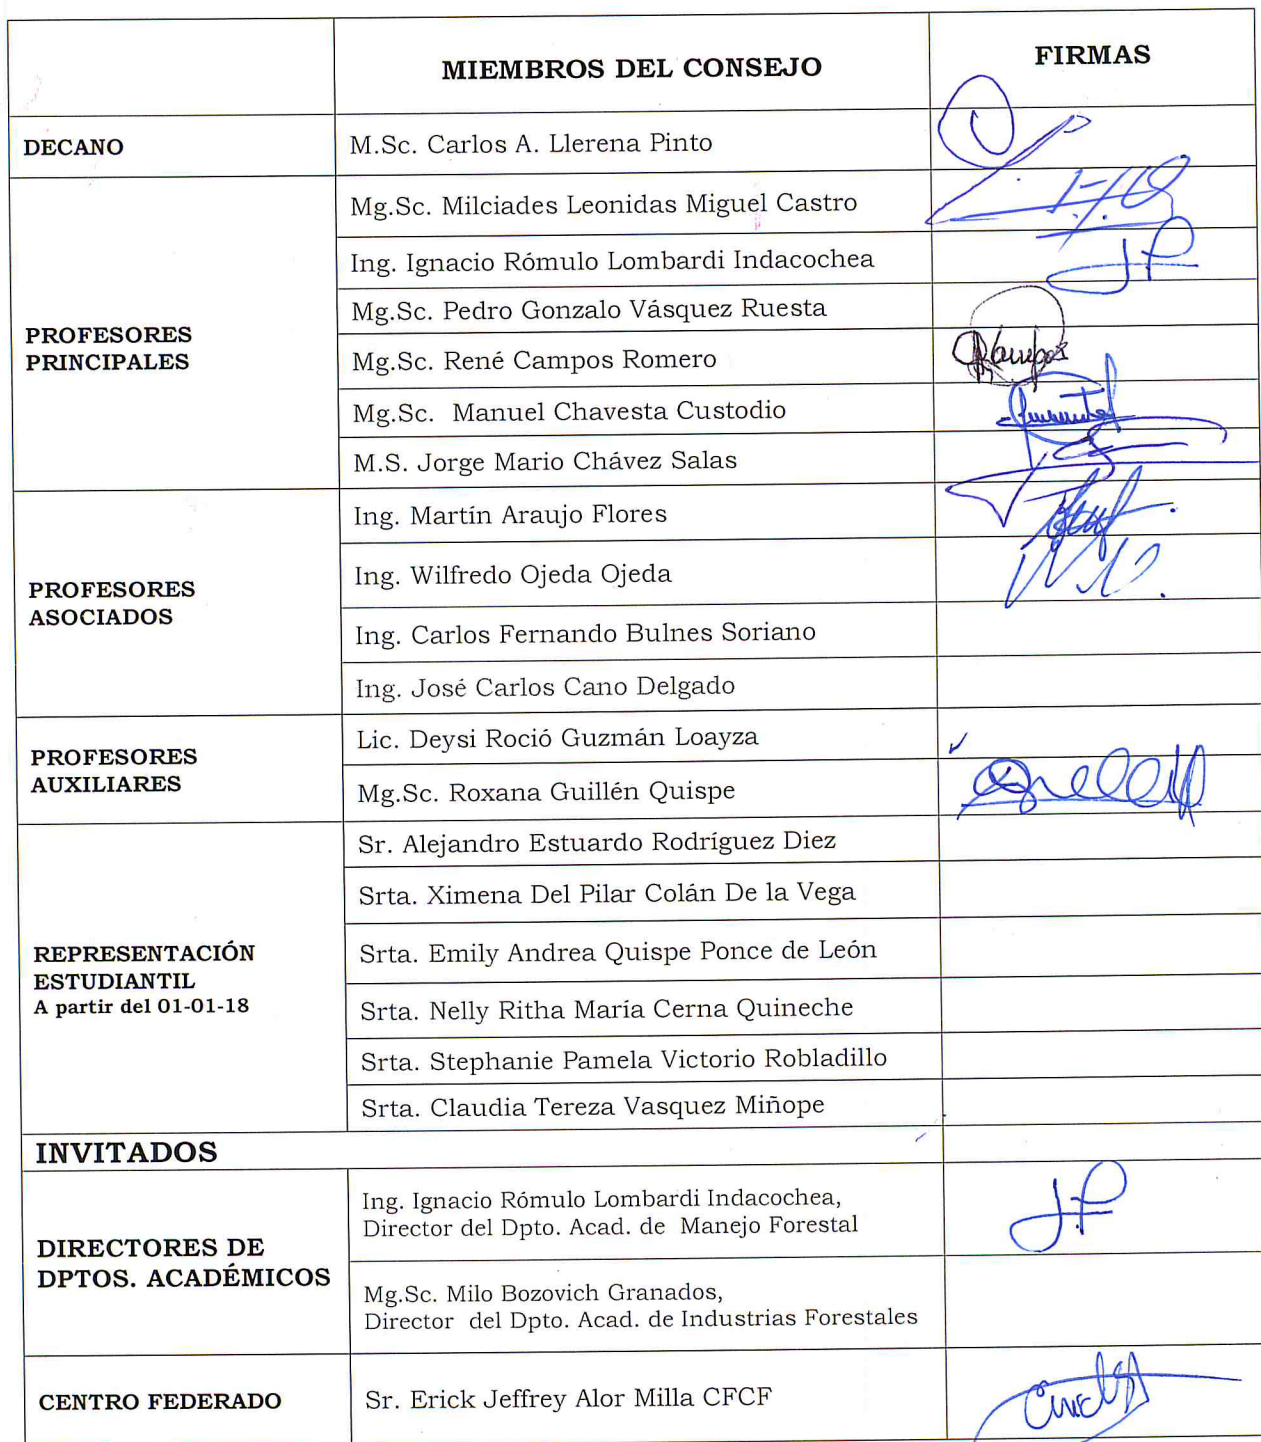 MIEMBROS DEL CONSEJO
FIRMAS
DECANO
M.Sc. Carlos A. Llerena Pinto
PROFESORES
PRINCIPALES
Mg.Sc. Milciades Leonidas Miguel Castro
Ing. Ignacio Rómulo Lombardi Indacochea
Mg.Sc. Pedro Gonzalo Vásquez Ruesta
Mg.Sc. René Campos Romero
Mg.Sc. Manuel Chavesta Custodio
M.S. Jorge Mario Chávez Salas
PROFESORES
ASOCIADOS
Ing. Martín Araujo Flores
Ing. Wilfredo Ojeda Ojeda
Ing. Carlos Fernando Bulnes Soriano
Ing. José Carlos Cano Delgado
PROFESORES
AUXILIARES
Lic. Deysi Roció Guzmán Loayza
Mg.Sc. Roxana Guillén Quispe
REPRESENTACIÓN
ESTUDIANTIL
A partir del 01-01-18
Sr. Alejandro Estuardo Rodríguez Diez
Srta. Ximena Del Pilar Colán De la Vega
Srta. Emily Andrea Quispe Ponce de León
Srta. Nelly Ritha María Cerna Quineche
Srta. Stephanie Pamela Victorio Robladillo
Srta. Claudia Tereza Vasquez Miñope
INVITADOS
DIRECTORES DE
DPTOS. ACADÉMICOS
Ing. Ignacio Rómulo Lombardi Indacochea,
Director del Dpto. Acad. de Manejo Forestal
Mg.Sc. Milo Bozovich Granados,
Director del Dpto. Acad. de Industrias Forestales
CENTRO FEDERADO
Sr. Erick Jeffrey Alor Milla CFCF